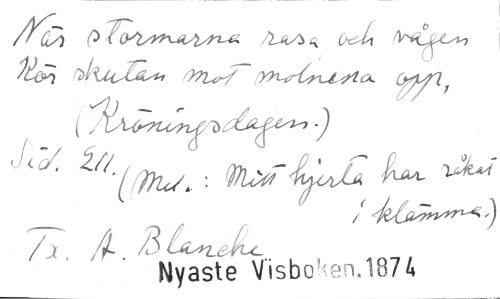 När stormarna rasa och vågen
Kör skutan mot molnena opp,
(Kröningsdagen.)
Sid. 211.
(Mel.: Mitt hjerta har råkat
i klämma.)
Tx. A. Blanche
Nyaste Visboken. 1874